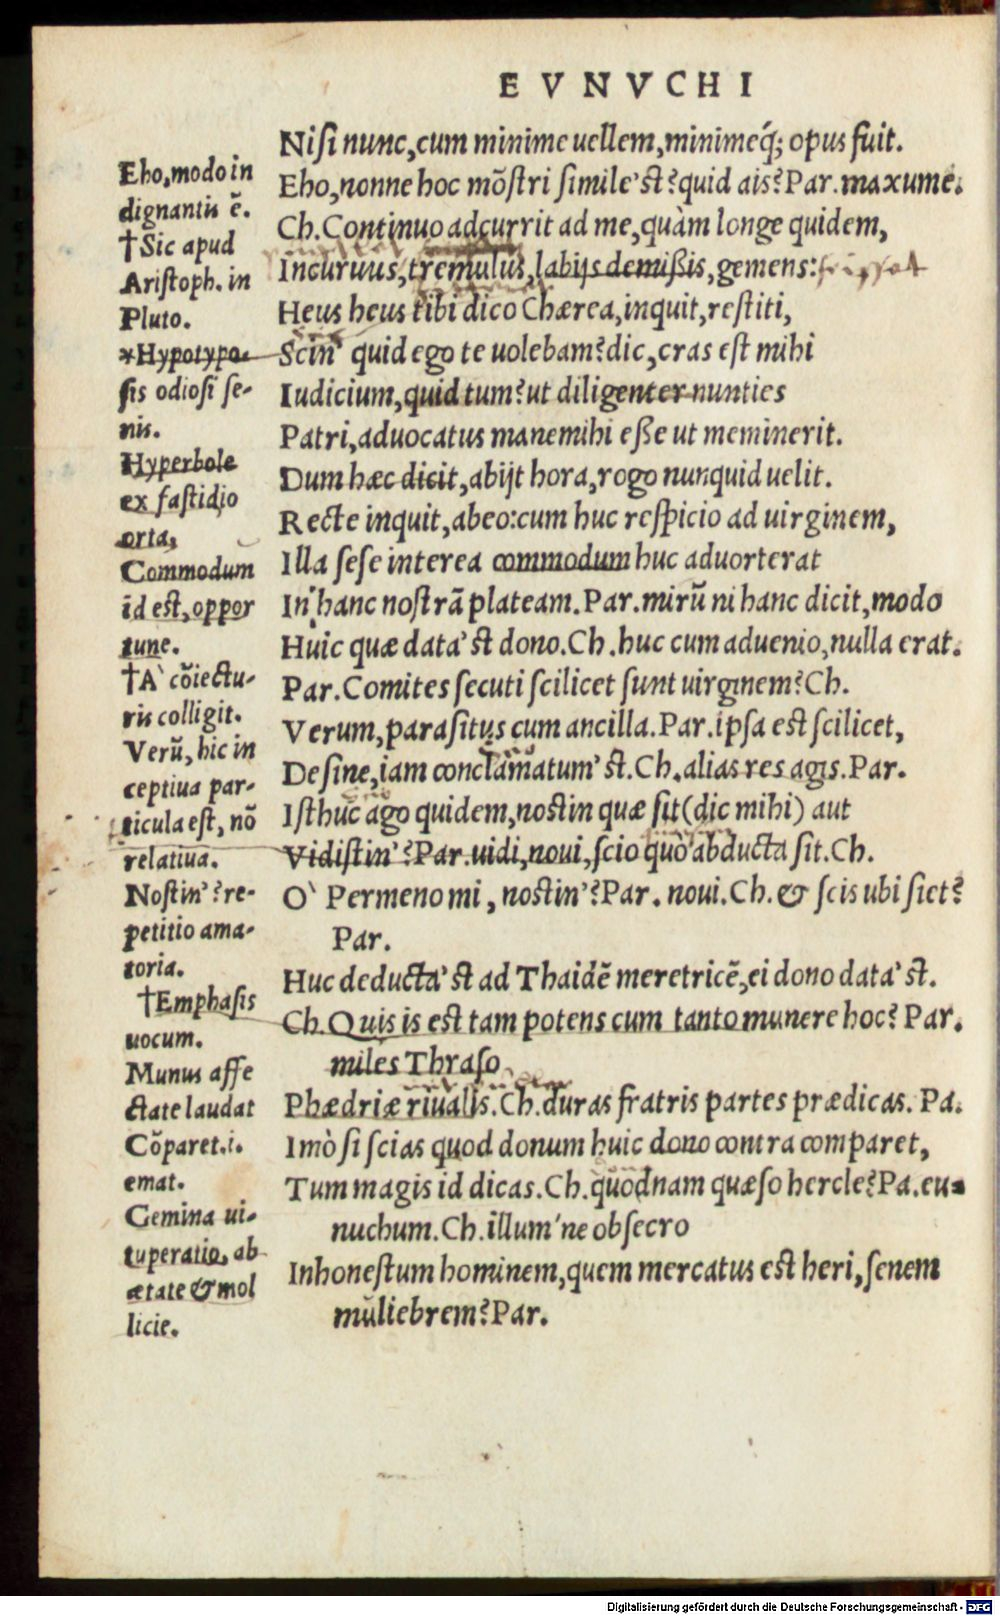 EVNVCHI
Niſi nunc,cum minime uellem,minimeq́; opus fuit.
Eho,nonne hoc mõſtri ſimile'ſt?quid ais?Par.maxume.
Ch.Continuo adcurrit ad me,quàm longe quidem,
Incuruus,tremulus,labijs demiſſis,gemens:
Heus heus tibi dico Chærea,inquit,reſtiti,
Scin' quid ego te uolebam?dic,cras eſt mihi
Iudicium,quid tum?ut diligenter nunties
Patri,aduocatus mane mihi eſſe ut meminerit.
Dum hæc dicit,abijt hora,rogo nunquid uelit.
Recte inquit,abeo:cum huc reſpicio ad uirginem,
Illa ſeſe interea commodum huc aduorterat
In hanc noſtrã plateam.Par.mirũ ni hanc dicit,modo
Huic quæ data'ſt dono.Ch.huc cum aduenio,nulla erat.
Par.Comites ſecuti ſcilicet ſunt uirginem?Ch.
Verum,paraſitus cum ancilla.Par.ipſa eſt ſcilicet,
Deſine,iam conclamatum'ſt.Ch.alias res agis.Par.
Iſthuc ago quidem,noſtin quæ ſit(dic mihi) aut
Vidiſtin'?Par.uidi,noui,ſcio quò abducta ſit.Ch.
O' Permeno mi, noſtin'?Par. noui.Ch.& ſcis ubi ſiet?
Par.
Huc deducta'ſt ad Thaidẽ meretricẽ,ei dono data'ſt.
Ch.Quis is eſt tam potens cum tanto munere hoc? Par.
miles Thraſo
Phædriæ riualis.Ch.duras fratris partes prædicas. Pa.
Imò ſi ſcias quod donum huic dono contra comparet,
Tum magis id dicas.Ch.quodnam quæſo hercle?Pa.eu-
nuchum.Ch.illum'ne obſecro
Inhoneſtum hominem,quem mercatus eſt heri,ſenem
muliebrem?Par.
Eho,modo in
dignantis ẽ.
†Sic apud
Ariſtoph.in
Pluto.
*Hypotypo-
ſis odioſi ſe-
nis.
Hyperbole
ex faſtidio
orta,
Commodum
id eſt,oppor
tune.
†A' cõiectu-
ris colligit.
Verũ,hic in
ceptiua par-
ticula eſt, nõ
relatiua.
Noſtin'?re-
petitio ama-
toria.
†Emphaſis
uocum.
Munus affe
ctate laudat
Cõparet.i.
emat.
Gemina ui-
tuperatio,ab
ætate & mol
licie.
Digitalisierung gefördert durch die Deutsche Forschungsgemeinschaft - DFG